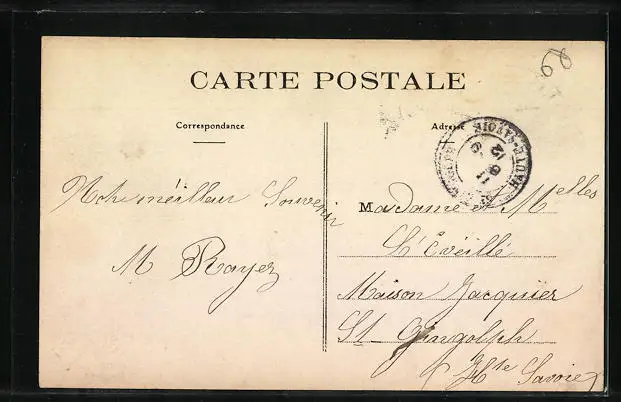 CARTE POSTALE
Correspondance
Adresse
HAUTE-SAVOIE
meilleur Souvenir
M Royer
Madame et Melles
L'Eveillé
Maison Jacquier
St Gingolph
Hte Savoie